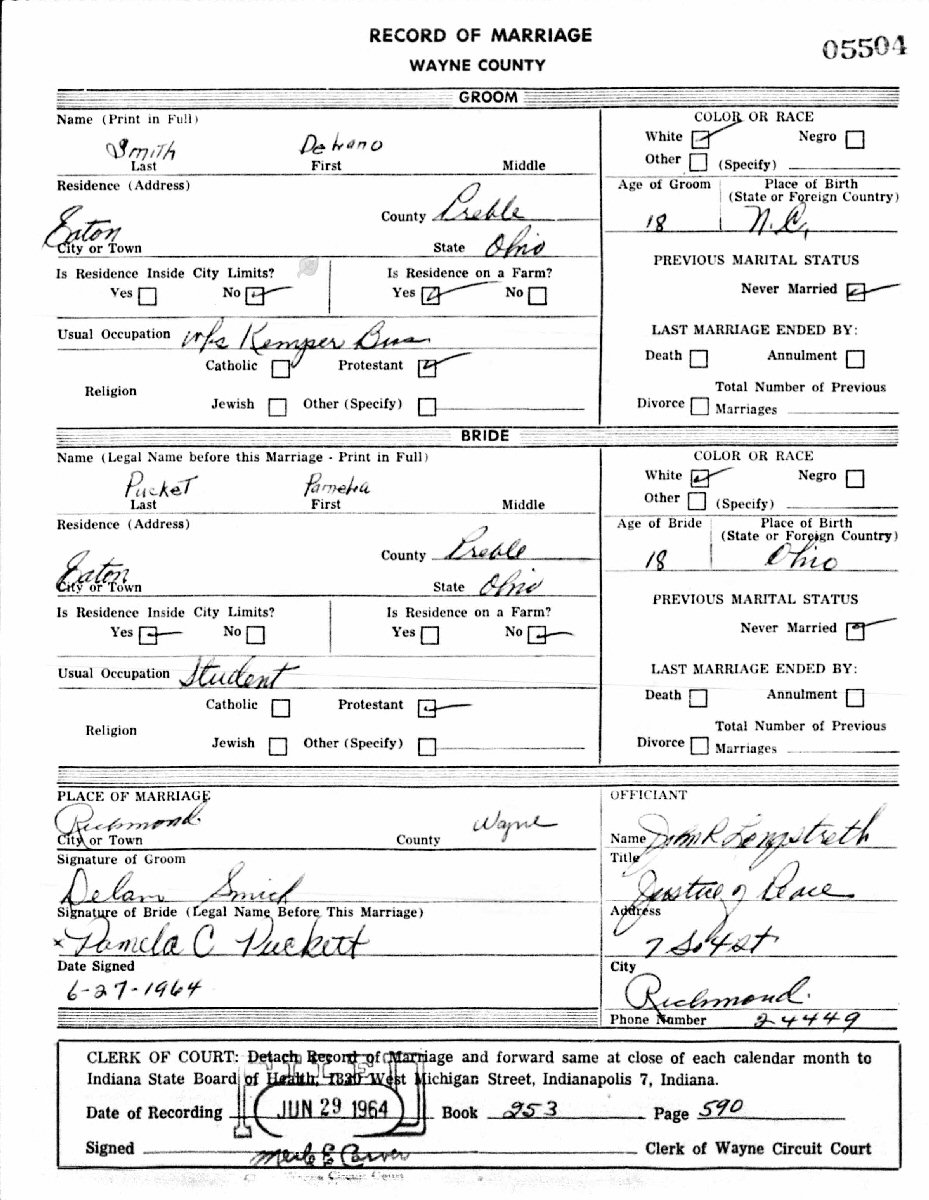 RECORD OF MARRIAGE
05504
WAYNE COUNTY
GROOM
Name (Print in Full)
COLOR OR RACE
White Negro
Smith Delano
Last First Middle
Other (Specify)
Residence (Address)
Age of Groom Place of Birth
(State or Foreign Country)
Eaton County Preble
18 N.C.
City or Town State Ohio
PREVIOUS MARITAL STATUS
Is Residence Inside City Limits? Is Residence on a Farm?
Yes No Yes No
Never Married
Usual Occupation Kemper
LAST MARRIAGE ENDED BY:
Death Annulment
Catholic Protestant
Religion
Total Number of Previous
Jewish Other (Specify)
Divorce Marriages
BRIDE
Name (Legal Name before this Marriage - Print in Full)
COLOR OR RACE
White Negro
Pucket Pamela
Last First Middle
Other (Specify)
Residence (Address)
Age of Bride Place of Birth
(State or Foreign Country)
Eaton County Preble
18 Ohio
City or Town State Ohio
PREVIOUS MARITAL STATUS
Is Residence Inside City Limits? Is Residence on a Farm?
Yes No Yes No
Never Married
Usual Occupation Student
LAST MARRIAGE ENDED BY:
Death Annulment
Catholic Protestant
Religion
Total Number of Previous
Jewish Other (Specify)
Divorce Marriages
PLACE OF MARRIAGE
Richmond Wayne
City or Town County
Signature of Groom
Delano Smith
Signature of Bride (Legal Name Before This Marriage)
x Pamela C Puckett
Date Signed
6-27-1964
OFFICIANT
Name John R Longstreth
Title
Justice of Peace
Address
7 So 4 St
City
Richmond.
Phone Number 24449
CLERK OF COURT: Detach Record of Marriage and forward same at close of each calendar month to
Indiana State Board of Health, 1330 West Michigan Street, Indianapolis 7, Indiana.
FILED
Date of Recording JUN 29 1964 Book 253 Page 590
Signed Merle E Carver Clerk of Wayne Circuit Court